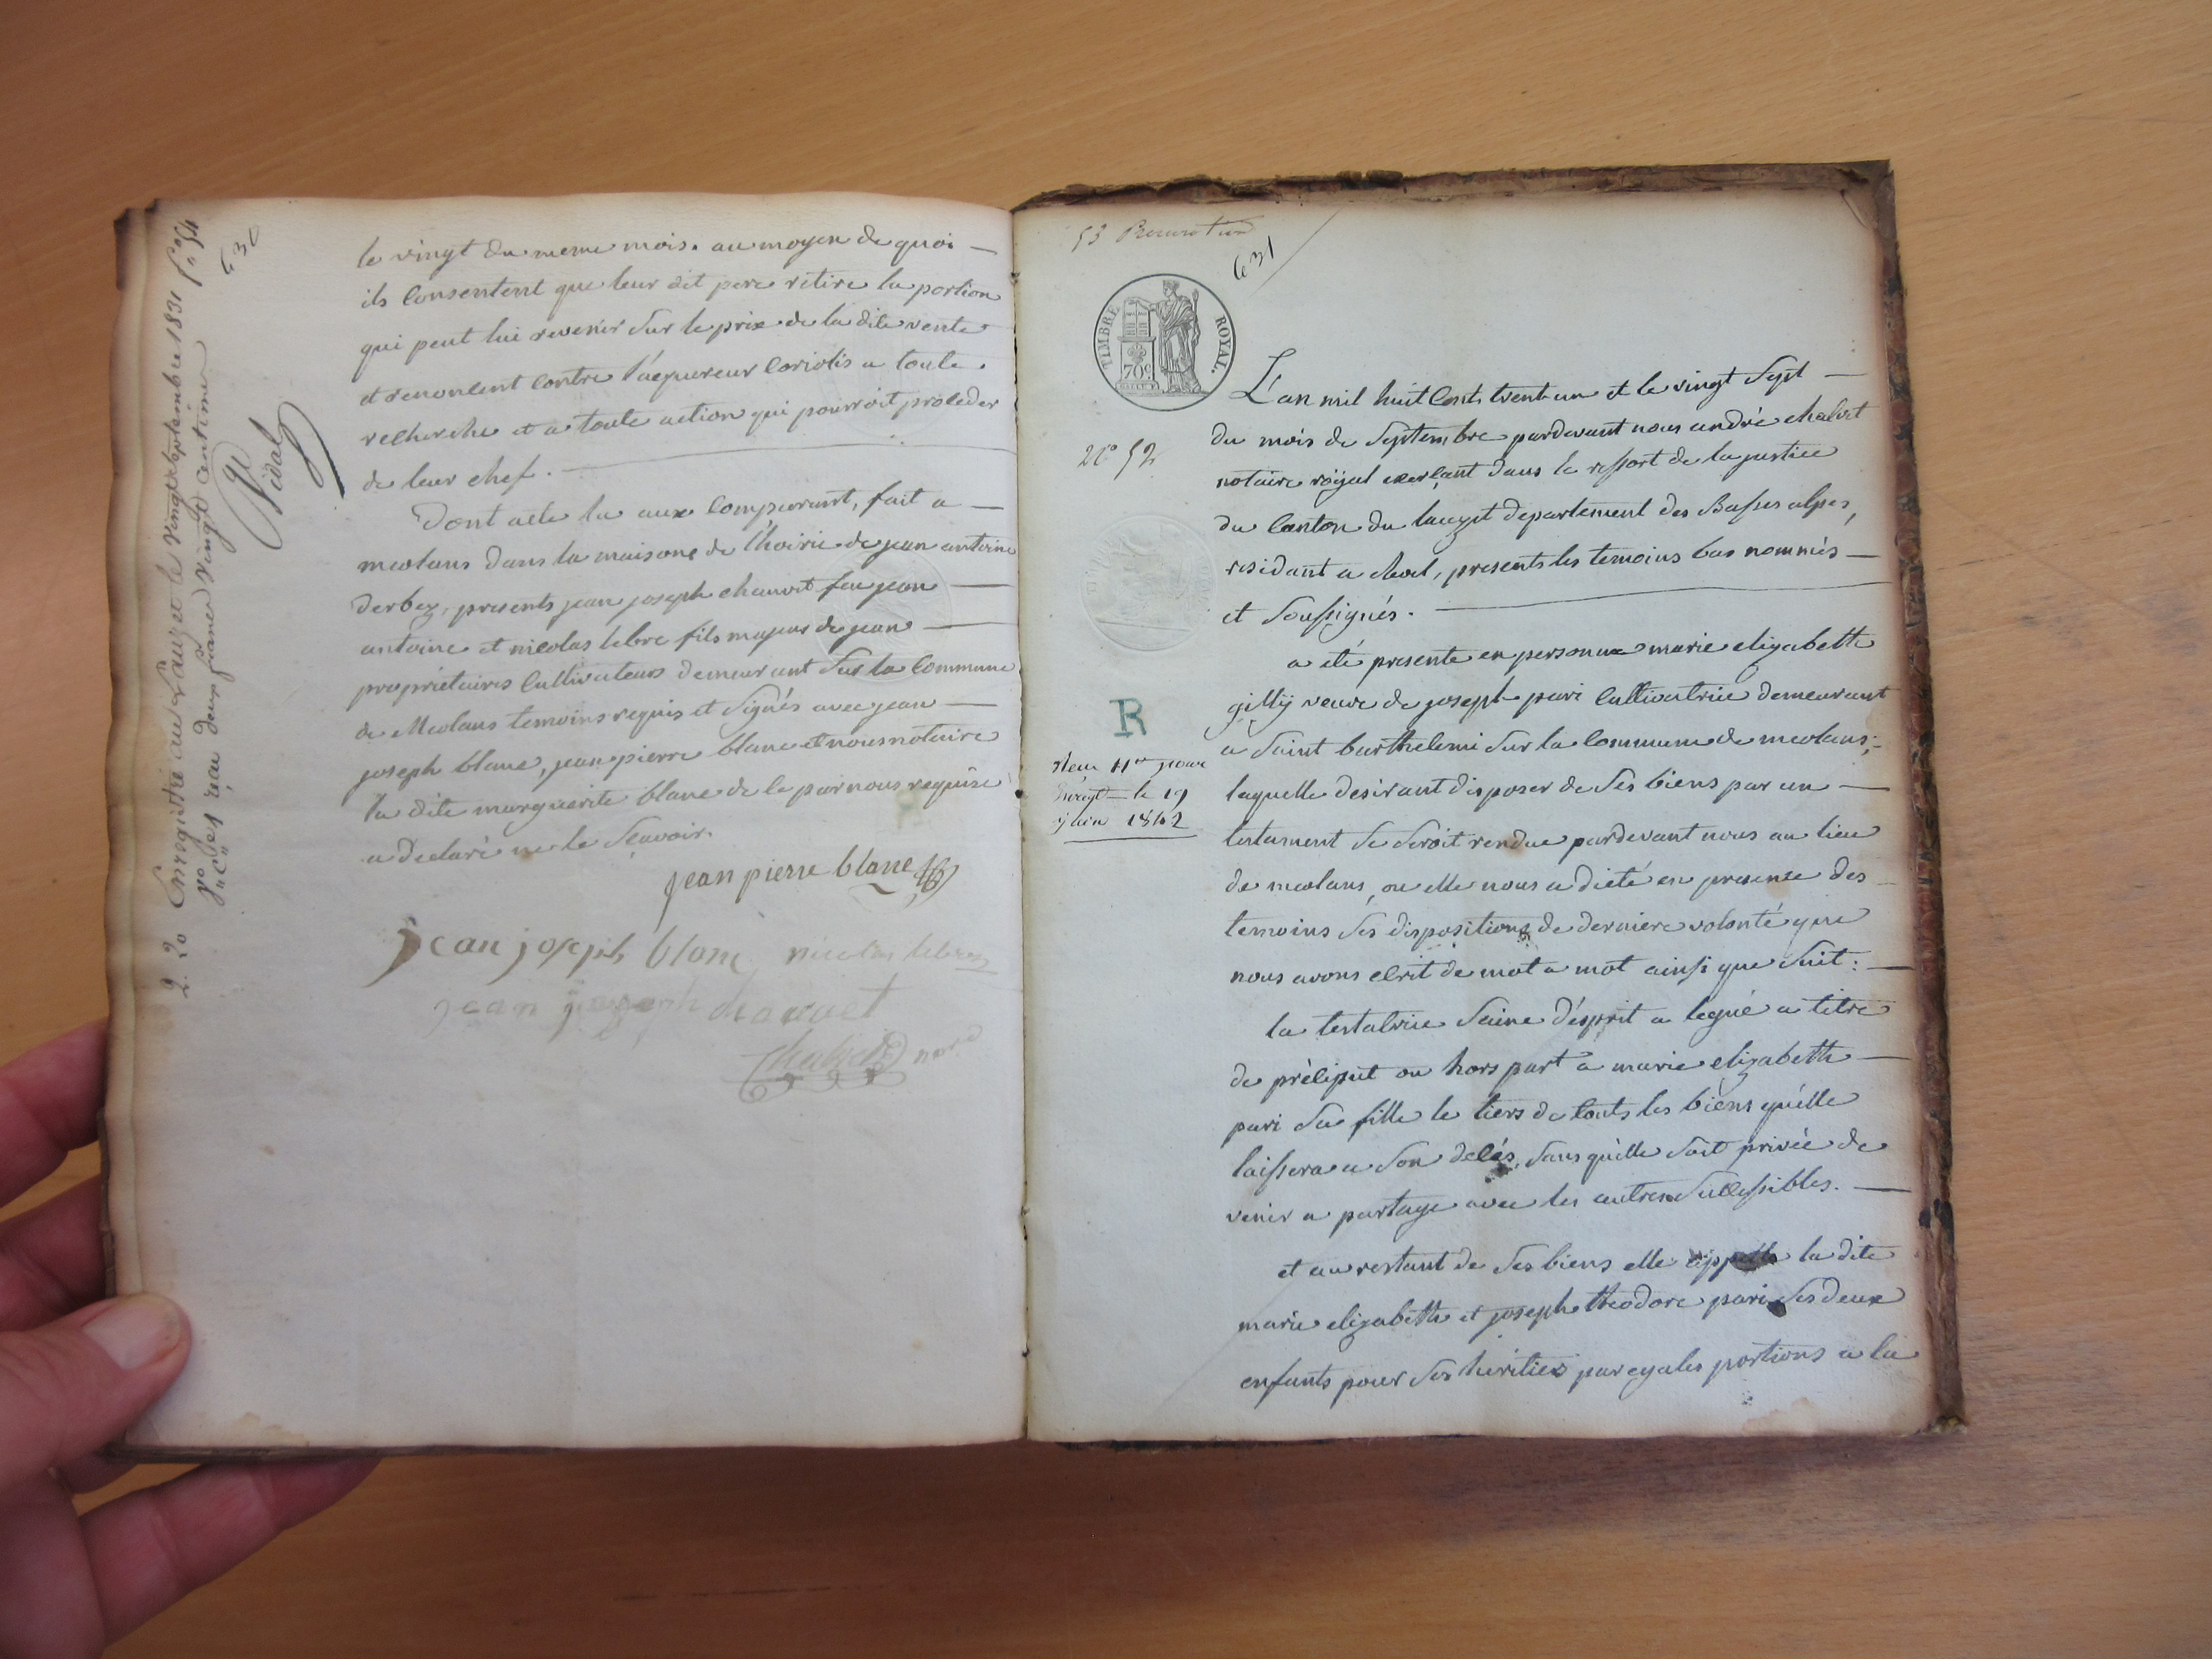 Enregistré au Lauzet le vingt septembre 1831 f° 54
v° reçu deux francs vingt centimes
2 20
Vidal
630
le vingt du meme mois. au moyen de quoi
ils consentent que leur dit pere retire la portion
qui peut lui revenir sur le prix de la dite vente
et renoncent contre l'acquereur coriolis a toute
recherche et a toute action qui pourroit proceder
de leur chef.
Dont acte lu aux comparant, fait a
meolans dans la maisone de l'hoirie de jean antoine
derbez, presents jean joseph chauvet feu jean
antoine et nicolas lebre fils majeur de jean
proprietaires cultivateurs demeurant sur la commune
de Meolans temoins requis et signés avec jean
joseph blanc, jean pierre blanc et nous notaire
la dite marguerite blanc de le par nous requise
a declaré ne le scavoir.
jean pierre blanc
jean joseph blanc nicolas lebre
jean joseph chauvet
Chalvet not
53 Procuration
631
TIMBRE ROYAL.
70c
52
R
le 19
juin 1842
L'an mil huit cent trent un et le vingt sept
du mois de septembre pardevant nous andré chalvet
notaire royal exerçant dans le ressort de la justice
du canton du lauzet departement des Basses alpes,
residant a revel, presents les temoins bas nommés
et soussignés.
a été presente en personne marie elizabeth
gilly veuve de joseph pari cultivatrice demeurant
a saint barthelemi sur la commune de meolans;
laquelle desirant disposer de ses biens par un
testament se seroit rendue pardevant nous au lieu
de meolans, ou elle nous a dicté en presence des
temoins ses dispositions de derniere volonté que
nous avons ecrit de mot a mot ainsi que suit:
la testatrice saine d'esprit a legué a titre
de préliput ou hors part a marie elizabeth
pari sa fille le tiers de touts les biens qu'elle
laissera a son decés, sans qu'elle soit privée de
venir a partage avec les autres successibles.
et au restant de ses biens elle appelle la dite
marie elizabeth et joseph theodore pari ses deux
enfants pour ses héritiers par egales portions a la